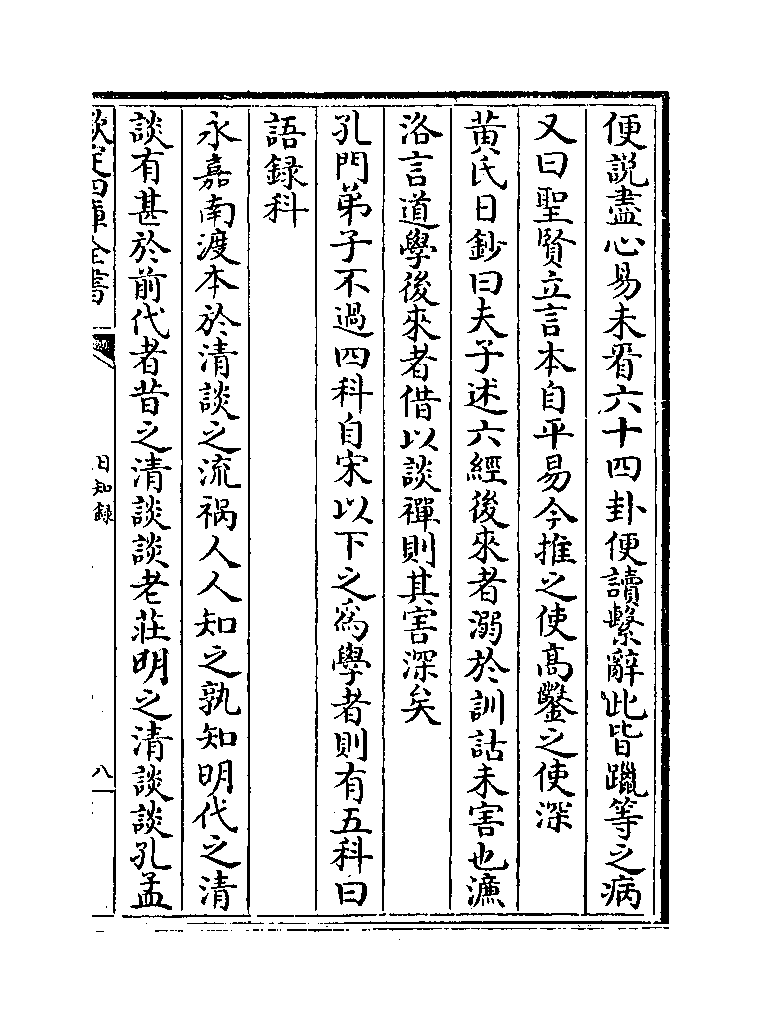 便說盡心易未㸔六十四卦便讀繫辭此皆躐等之病
又曰聖賢立言本自平易今推之使髙鑿之使深
黄氏日鈔曰夫子述六經後來者溺於訓詁未害也濂
洛言道學後來者借以談禪則其害深矣
孔門弟子不過四科自宋以下之爲學者則有五科曰
語録科
永嘉南渡本於清談之流禍人人知之孰知明代之清
談有甚於前代者昔之清談談老莊明之清談談孔孟
欽定四庫全書
日知録
八